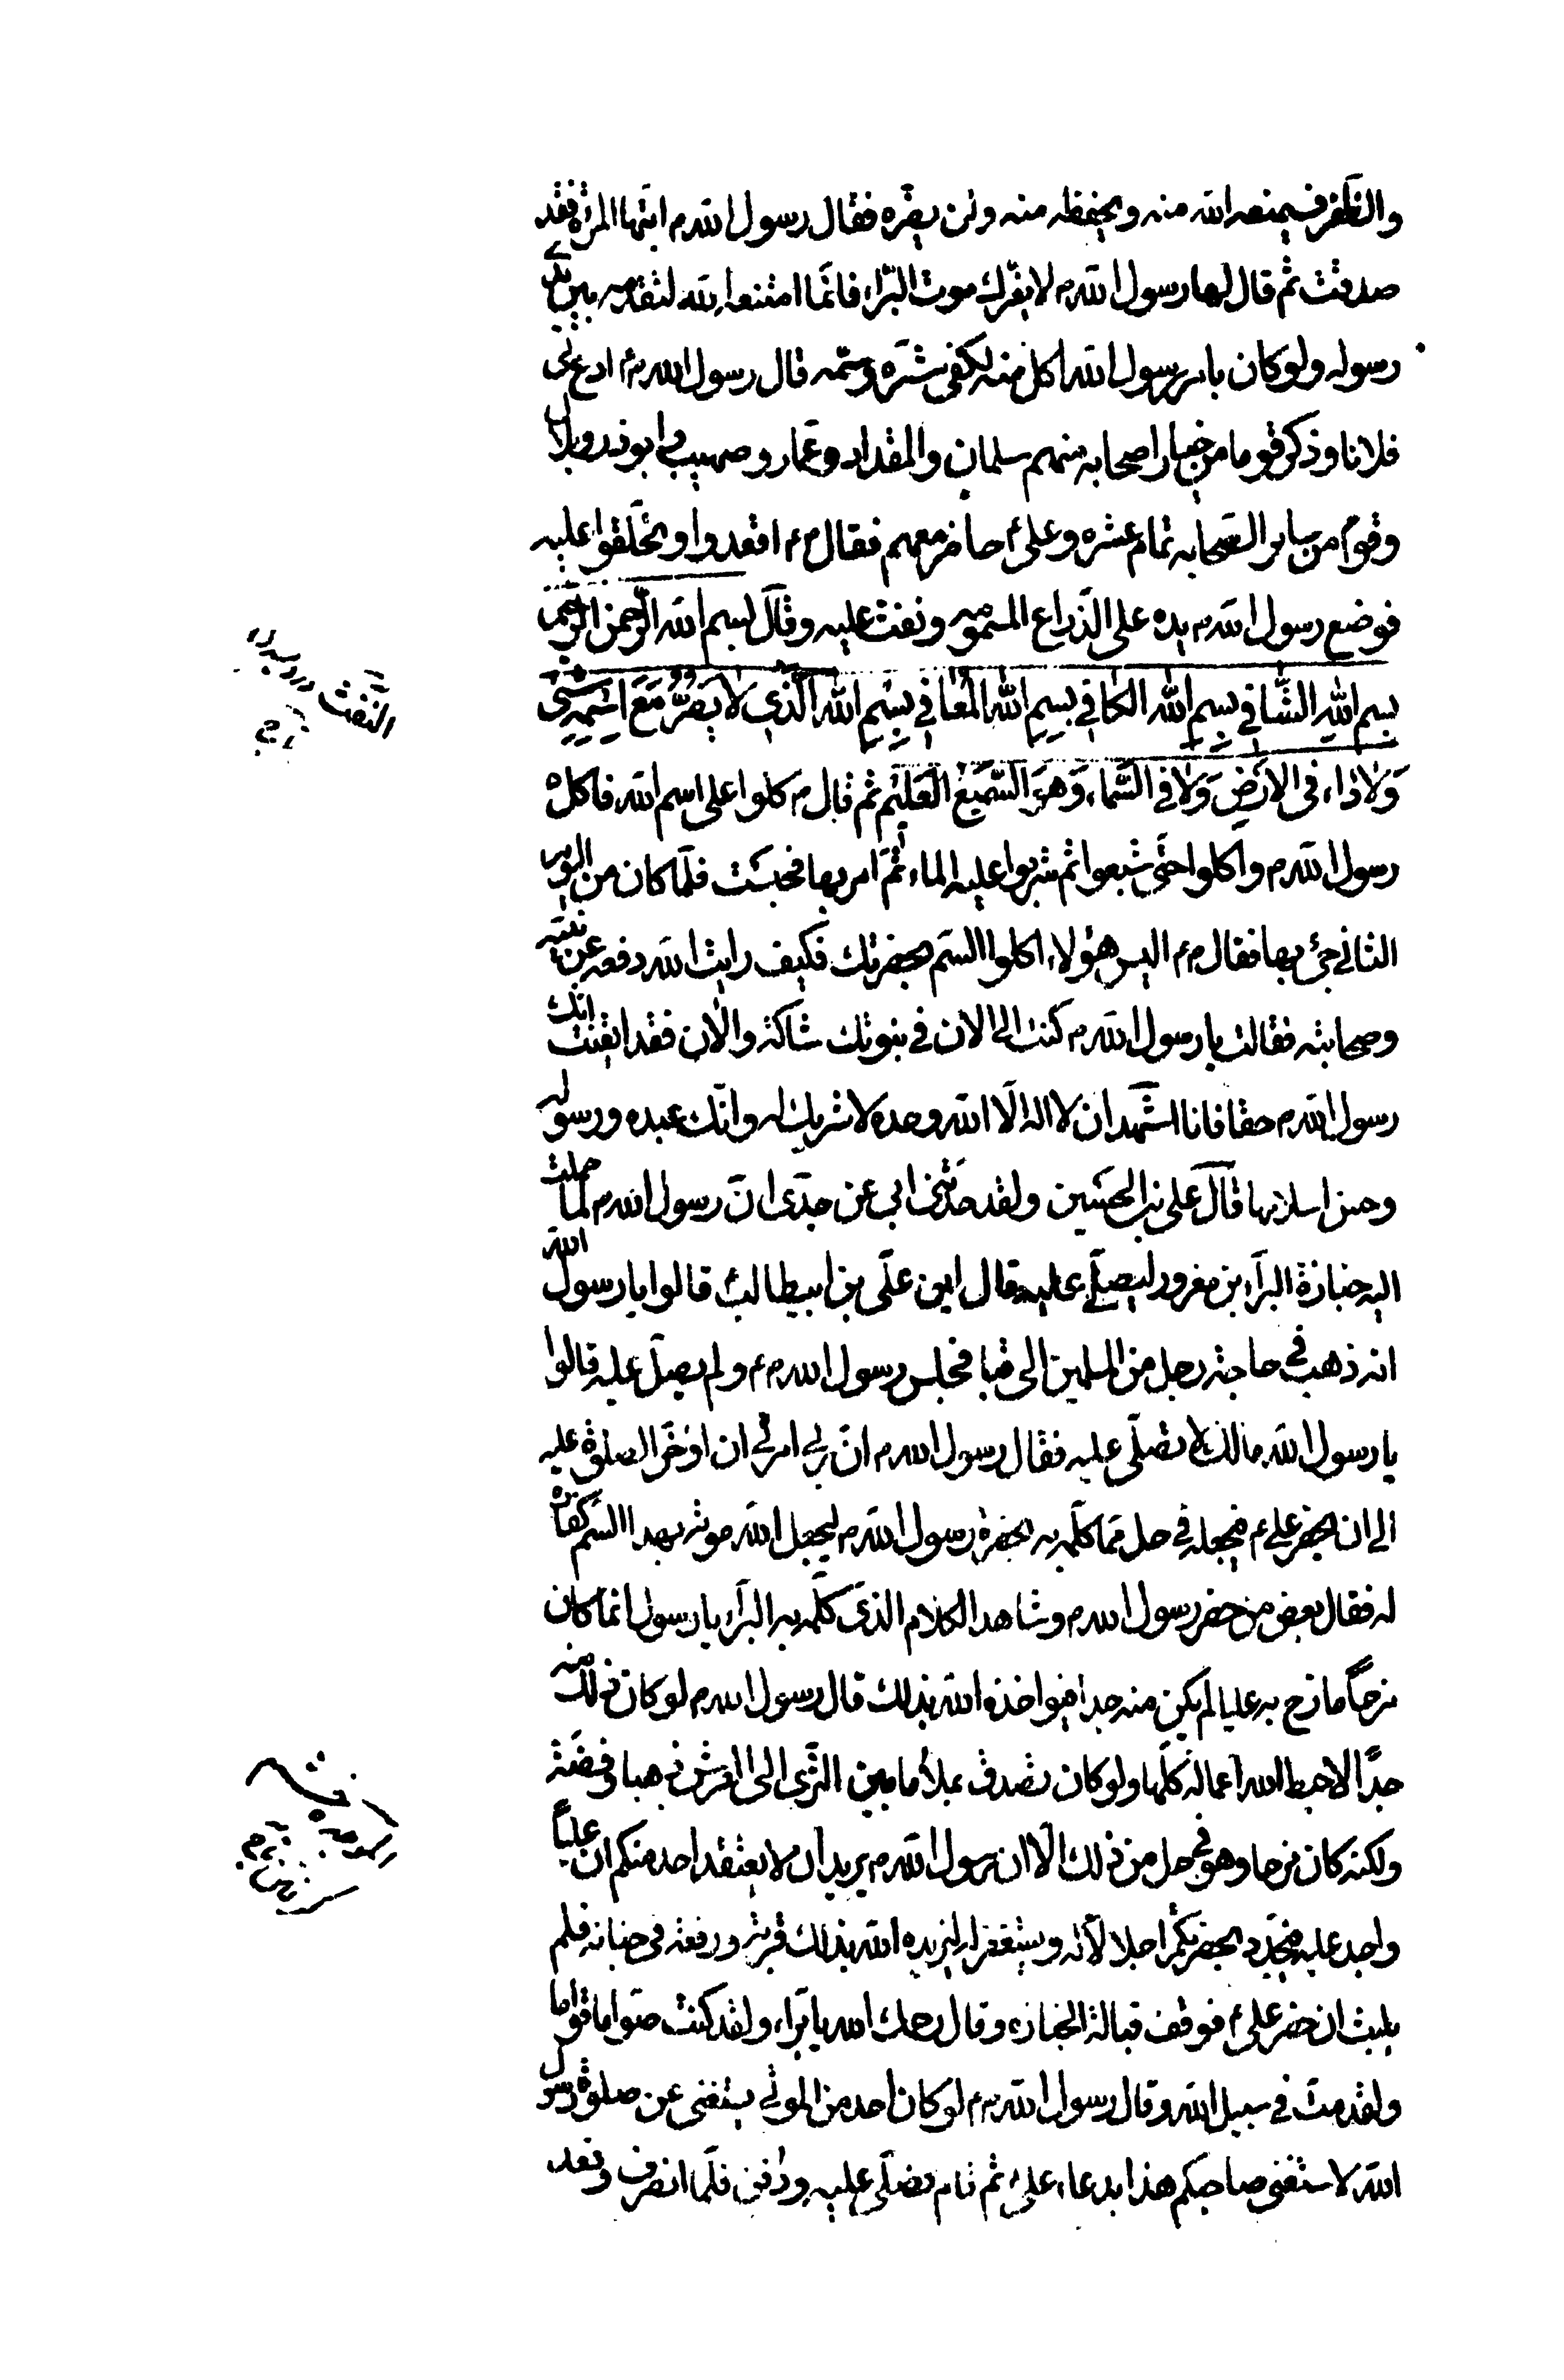 والظفر فسيمنعه الله منه ويحفظه منه ولن يضره فقال رسول الله م ايتها المراة فقد
صدقت ثم قال لها رسول الله م لا يغرك موت البراء فانما امتنعه الله لتقدمه بين يدي
رسوله ولو كان بامر رسول الله اكل منه لكفي شره وسمه قال رسول الله م ادع لي
فلانا وذكر قوما من خيار اصحابه منهم سلمان والمقداد وعمار وصهيب وابوذر وبلال
وقوم من ساير الصحابه تمام عشره وعلي ع حاضر معهم فقال م اقعدوا وتحلقوا عليه
فوضع رسول الله م يده على الذراع المسمومه ونفث عليه وقال بسم الله الرحمن الرحيم
بسم الله الشافي بسم الله الكافي بسم الله المعافي بسم الله الذي لا يضر مع اسمه شئ
ولا داء في الارض ولا في السماء وهو السميع العليم ثم قال م كلوا على اسم الله فاكل
رسول الله م واكلوا حتى شبعوا ثم شربوا عليه الماء ثم امر بها فحبست فلما كان من اليوم
الثاني جئ بها فقال م اليس هؤلاء اكلوا السم بحضرتك فكيف رايت الله دفعه عن نبيه
وصحابته فقالت يا رسول الله م كنت الى الان في نبوتك شاكة والان فقد ايقنت انك
رسول الله م حقا فانا اشهد ان لا اله الا الله وحده لا شريك له وانك عبده ورسوله
وحسن اسلامها قال علي بن الحسين ولقد حدثني ابي عن جدي ان رسول الله م لما حملت
اليه جنازة البراء بن معرور ليصلي عليه قال اين علي بن ابيطالب قالوا يا رسول الله
انه ذهب في حاجة رجل من المسلمين الى قبا فجلس رسول الله م ولم يصل عليه قالوا
يا رسول الله مالك لا تصلي عليه فقال رسول الله م ان ربي امرني ان اؤخر الصلوة عليه
الى ان يحضر علي ع فيجعله في حل مما كلمه به بحضرة رسول الله م ليجعل الله موته بهذا السم كفارة
له فقال بعض من حضر رسول الله م وشاهد الكلام الذي كلمه به البراء يا رسول انما كان
مزحا مازح به عليا لم يكن منه جدا فيواخذه الله بذلك قال رسول الله م لو كان ذلك منه
جدا لاحبط الله اعماله كلها ولو كان تصدق بملأ ما بين الثرى الى العرش ذهبا وفضة
ولكنه كان مزحا وهو في حل من ذلك الا ان رسول الله م يريد ان لا يعتقد احد منكم ان عليا
واجد عليه فيجدد بحضرتكم احلالا له ويستغفر له ليزيده الله بذلك قربة ورفعة في جنانه فلم
يلبث ان حضر علي ع فوقف قبالة الجنازه وقال رحمك الله يا براء ولقد كنت صواما قواما
ولقد مت في سبيل الله وقال رسول الله م لو كان احد من الموتى يستغني عن صلوة رسول
الله لاستغنى صاحبكم هذا بدعاء علي ع ثم قام فصلى عليه ودفن فلما انصرف وقعد
النفث